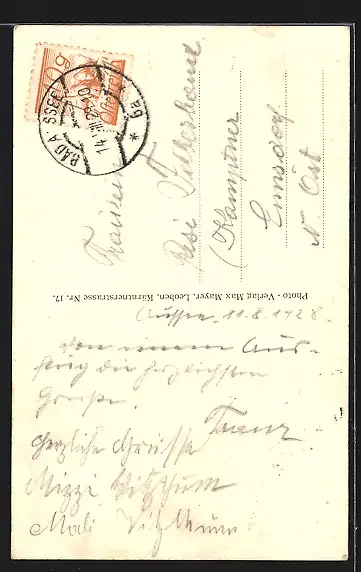 BAD AUSSEE
14.VIII.28.10
* 6a *
Fräulein
Resi
(Kamptner)
Lunsdorf
N. Öst
Photo - Verlag Max Mayer, Leoben, Kärntnerstrasse Nr. 17.
Aussee, 11.8.1928
von einem Aus-
flug die herzlichsten
Grüße.
Franz
herzliche Grüsse
Mizzi Vitzthum
Mali Vitzthum